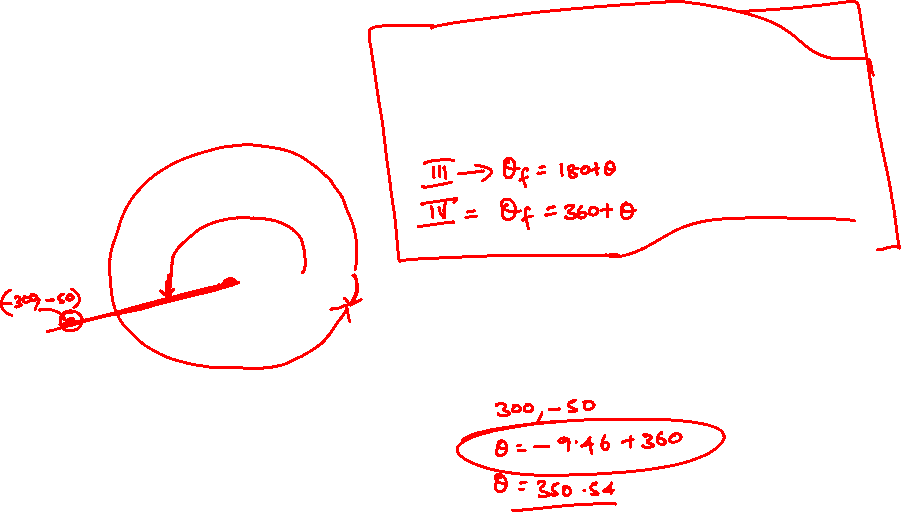 III → θf = 180+θ
IV = θf = 360+θ
(-300,-50)
300, -50
θ = -9.46 + 360
θ = 350.54